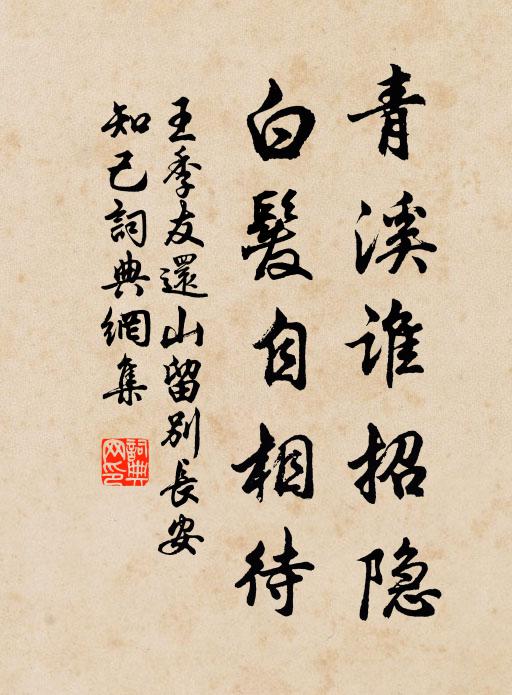 青溪谁招隐
白髮自相待
王季友還山留別長安
知己詞典網集
詞典
网印